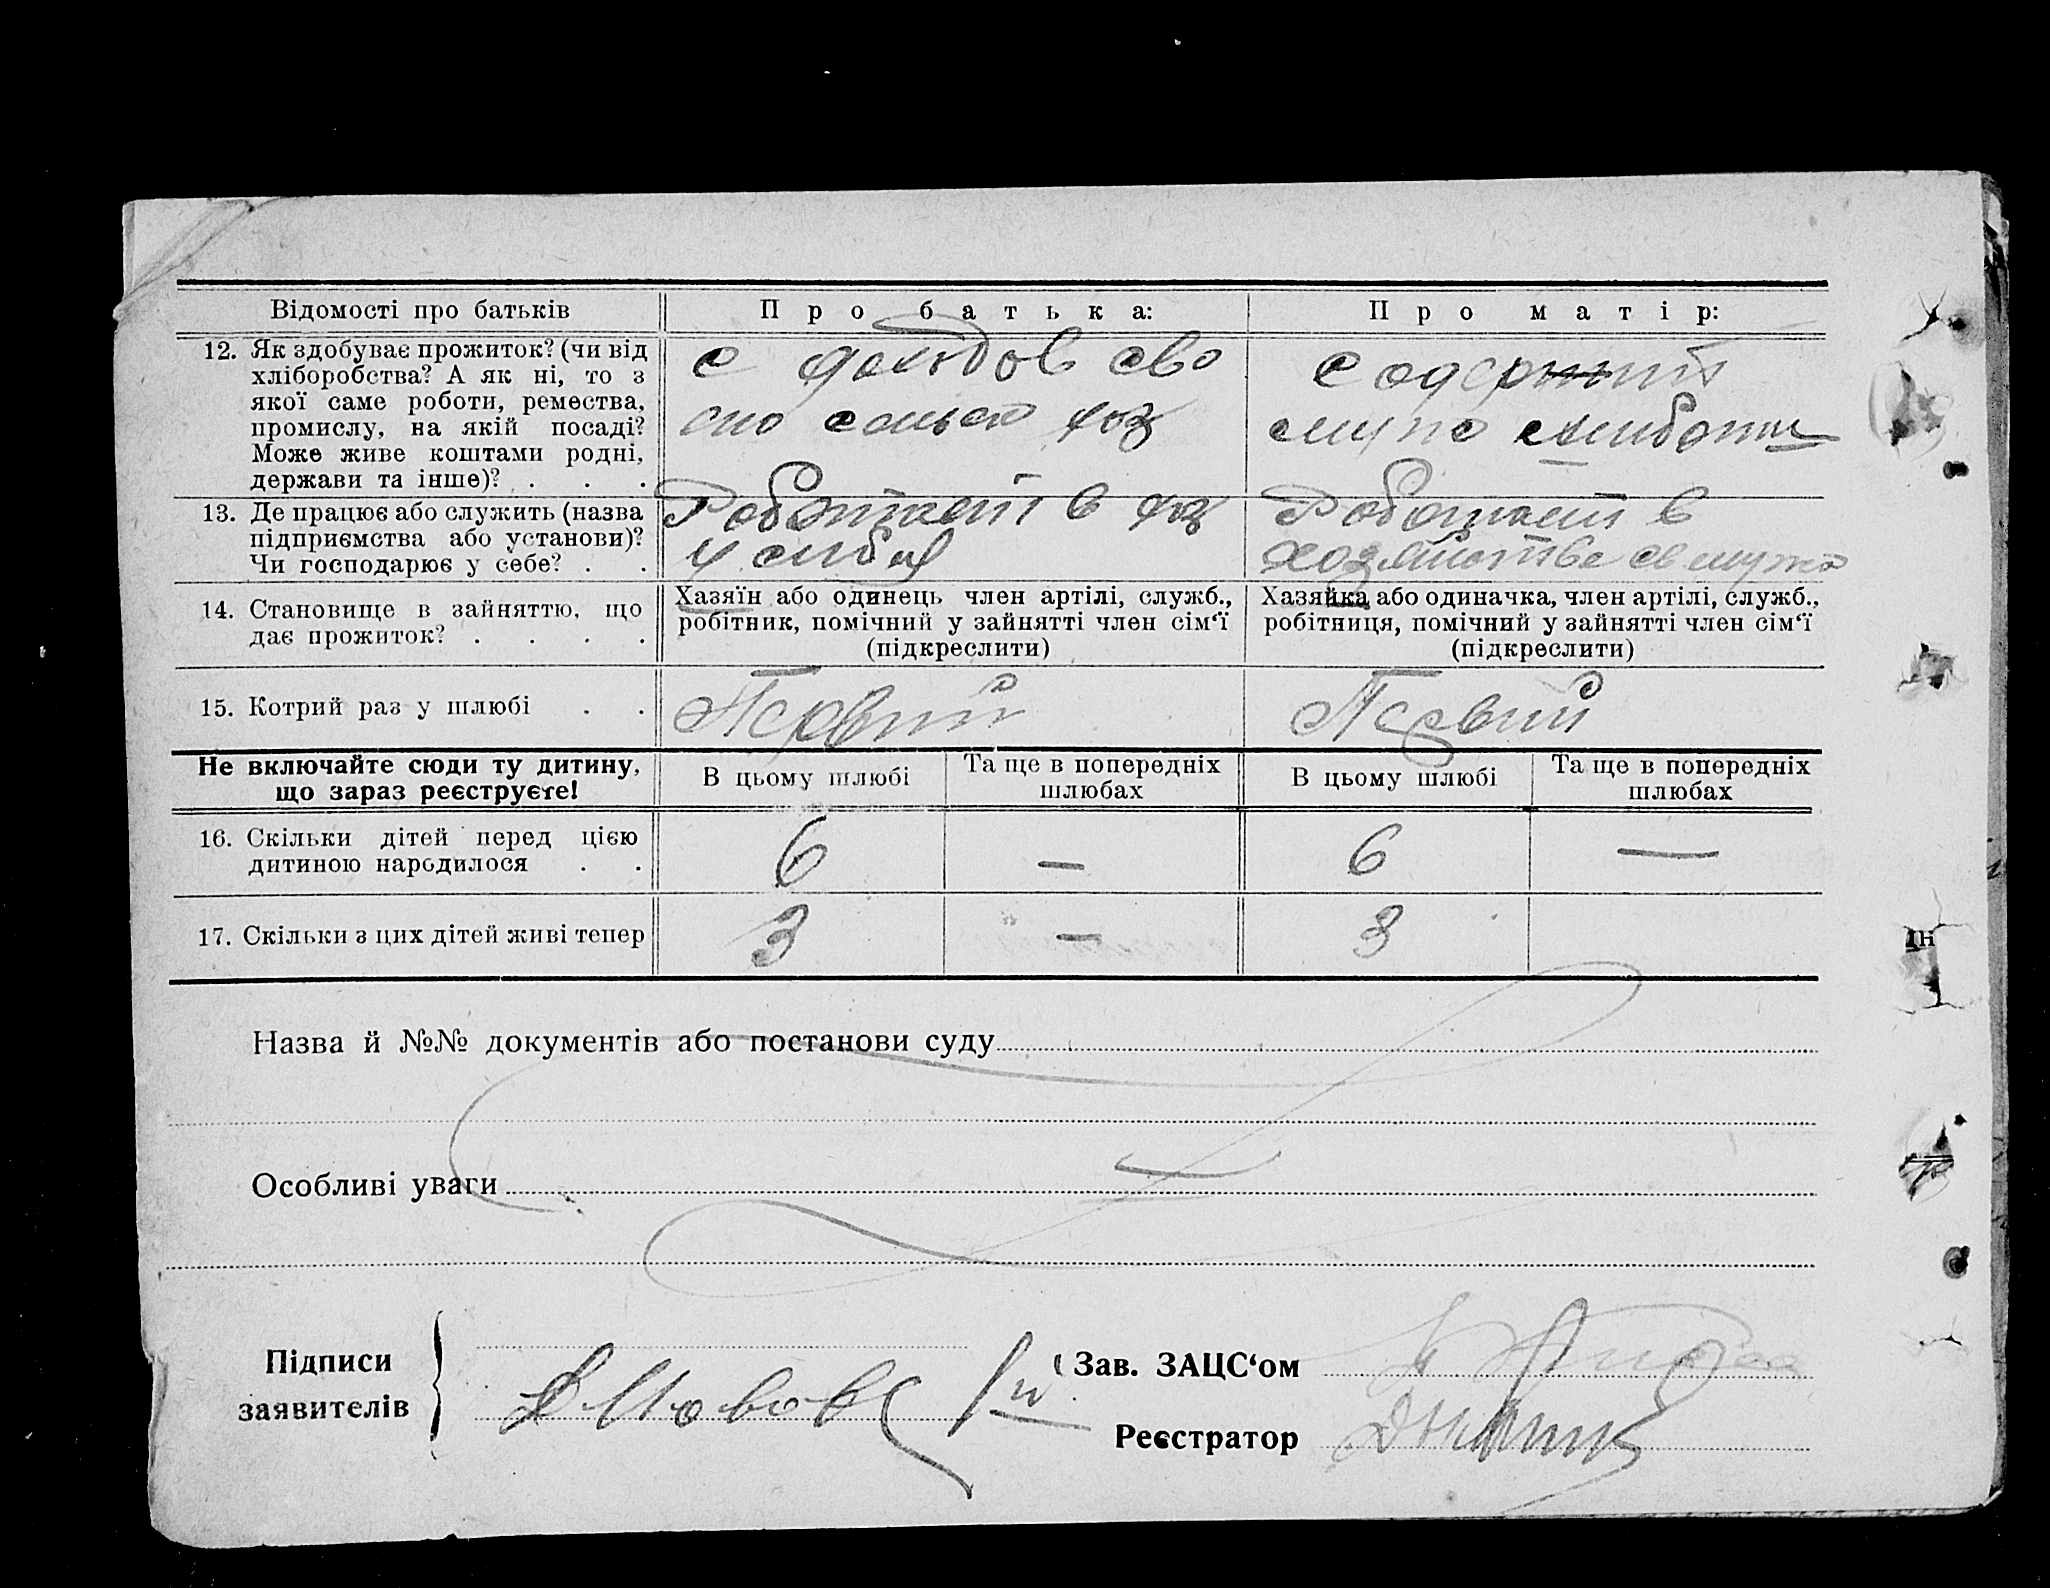 Відомості про батьків
Про батька:
Про матір:
12. Як здобуває прожиток? (чи від
хліборобства? А як ні, то з
якої саме роботи, ремества,
промислу, на якій посаді?
Може живе коштами родні,
держави та інше)? . . .
с доходов сво
его сельско хоз
содержит
13. Де працює або служить (назва
підприємства або установи)?
Чи господарює у себе? . .
Работает в хоз
у себя
Работает в
хозяйстве мужа
14. Становище в зайняттю, що
дає прожиток? . . . .
Хазяїн або одинець член артілі, служб.,
робітник, помічний у зайнятті член сім‘ї
(підкреслити)
Хазяйка або одиначка, член артілі, служб.,
робітниця, помічний у зайнятті член сім‘ї
(підкреслити)
15. Котрий раз у шлюбі . .
Первий
Первий
Не включайте сюди ту дитину,
що зараз реєструєте!
В цьому шлюбі
Та ще в попередніх
шлюбах
В цьому шлюбі
Та ще в попередніх
шлюбах
16. Скільки дітей перед цією
дитиною народилося . .
6
—
6
—
17. Скільки з цих дітей живі тепер
3
—
3
Назва й №№ документів або постанови суду
Особливі уваги
Підписи
заявителів
Зав. ЗАЦС‘ом
Реєстратор